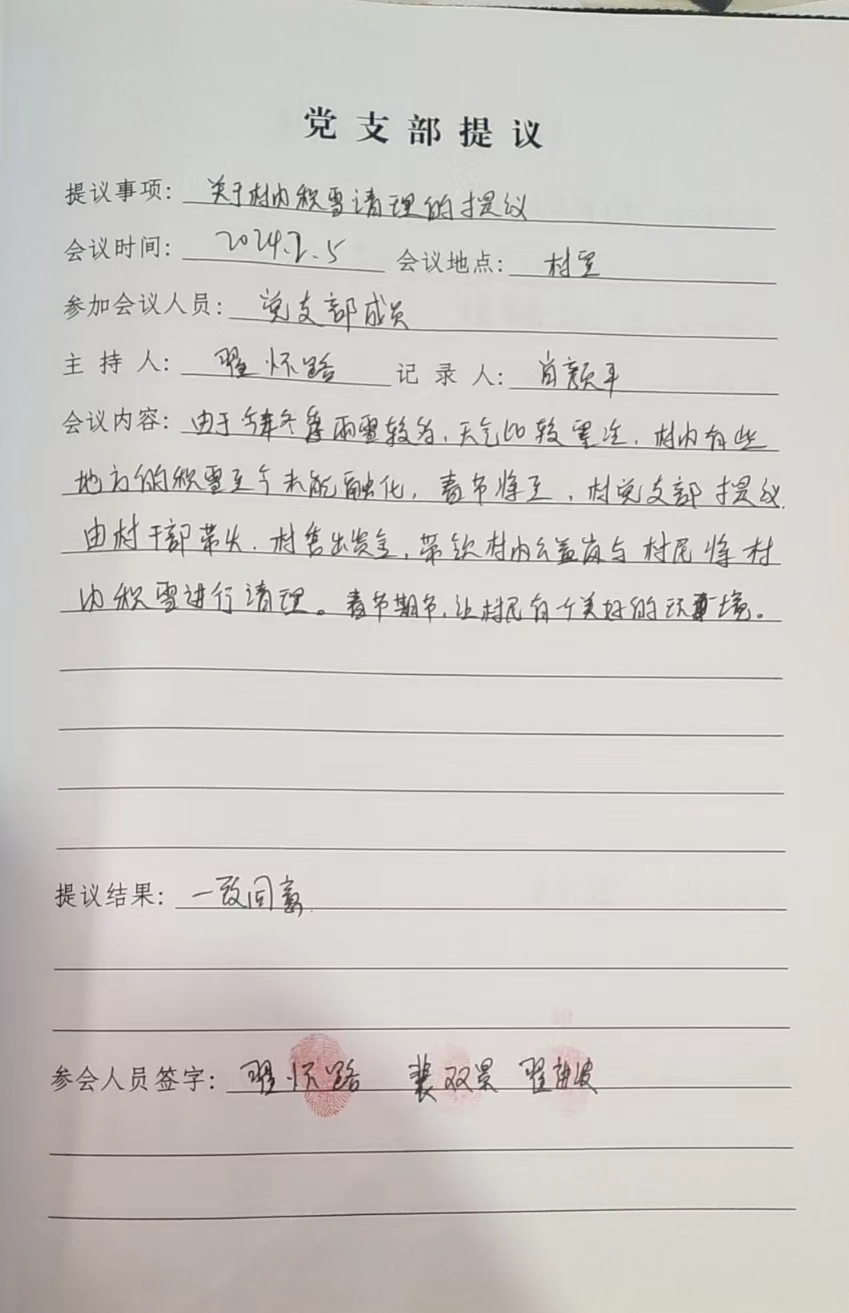 党支部提议
提议事项: 关于村内积雪清理的提议
会议时间: 2024.2.5 会议地点: 村室
参加会议人员: 党支部成员
主持人: 翟怀路 记录人: 肖颜平
会议内容: 由于今年冬季雨雪较多,天气比较寒冷,村内有些
地方的积雪至今未能融化,春节将至,村党支部提议
由村干部带头,村出资金,带领村内公益岗与村民将村
内积雪进行清理。春节期节,让村民有个美好的环境。
提议结果: 一致同意.
参会人员签字: 翟怀路 裴双景 翟波